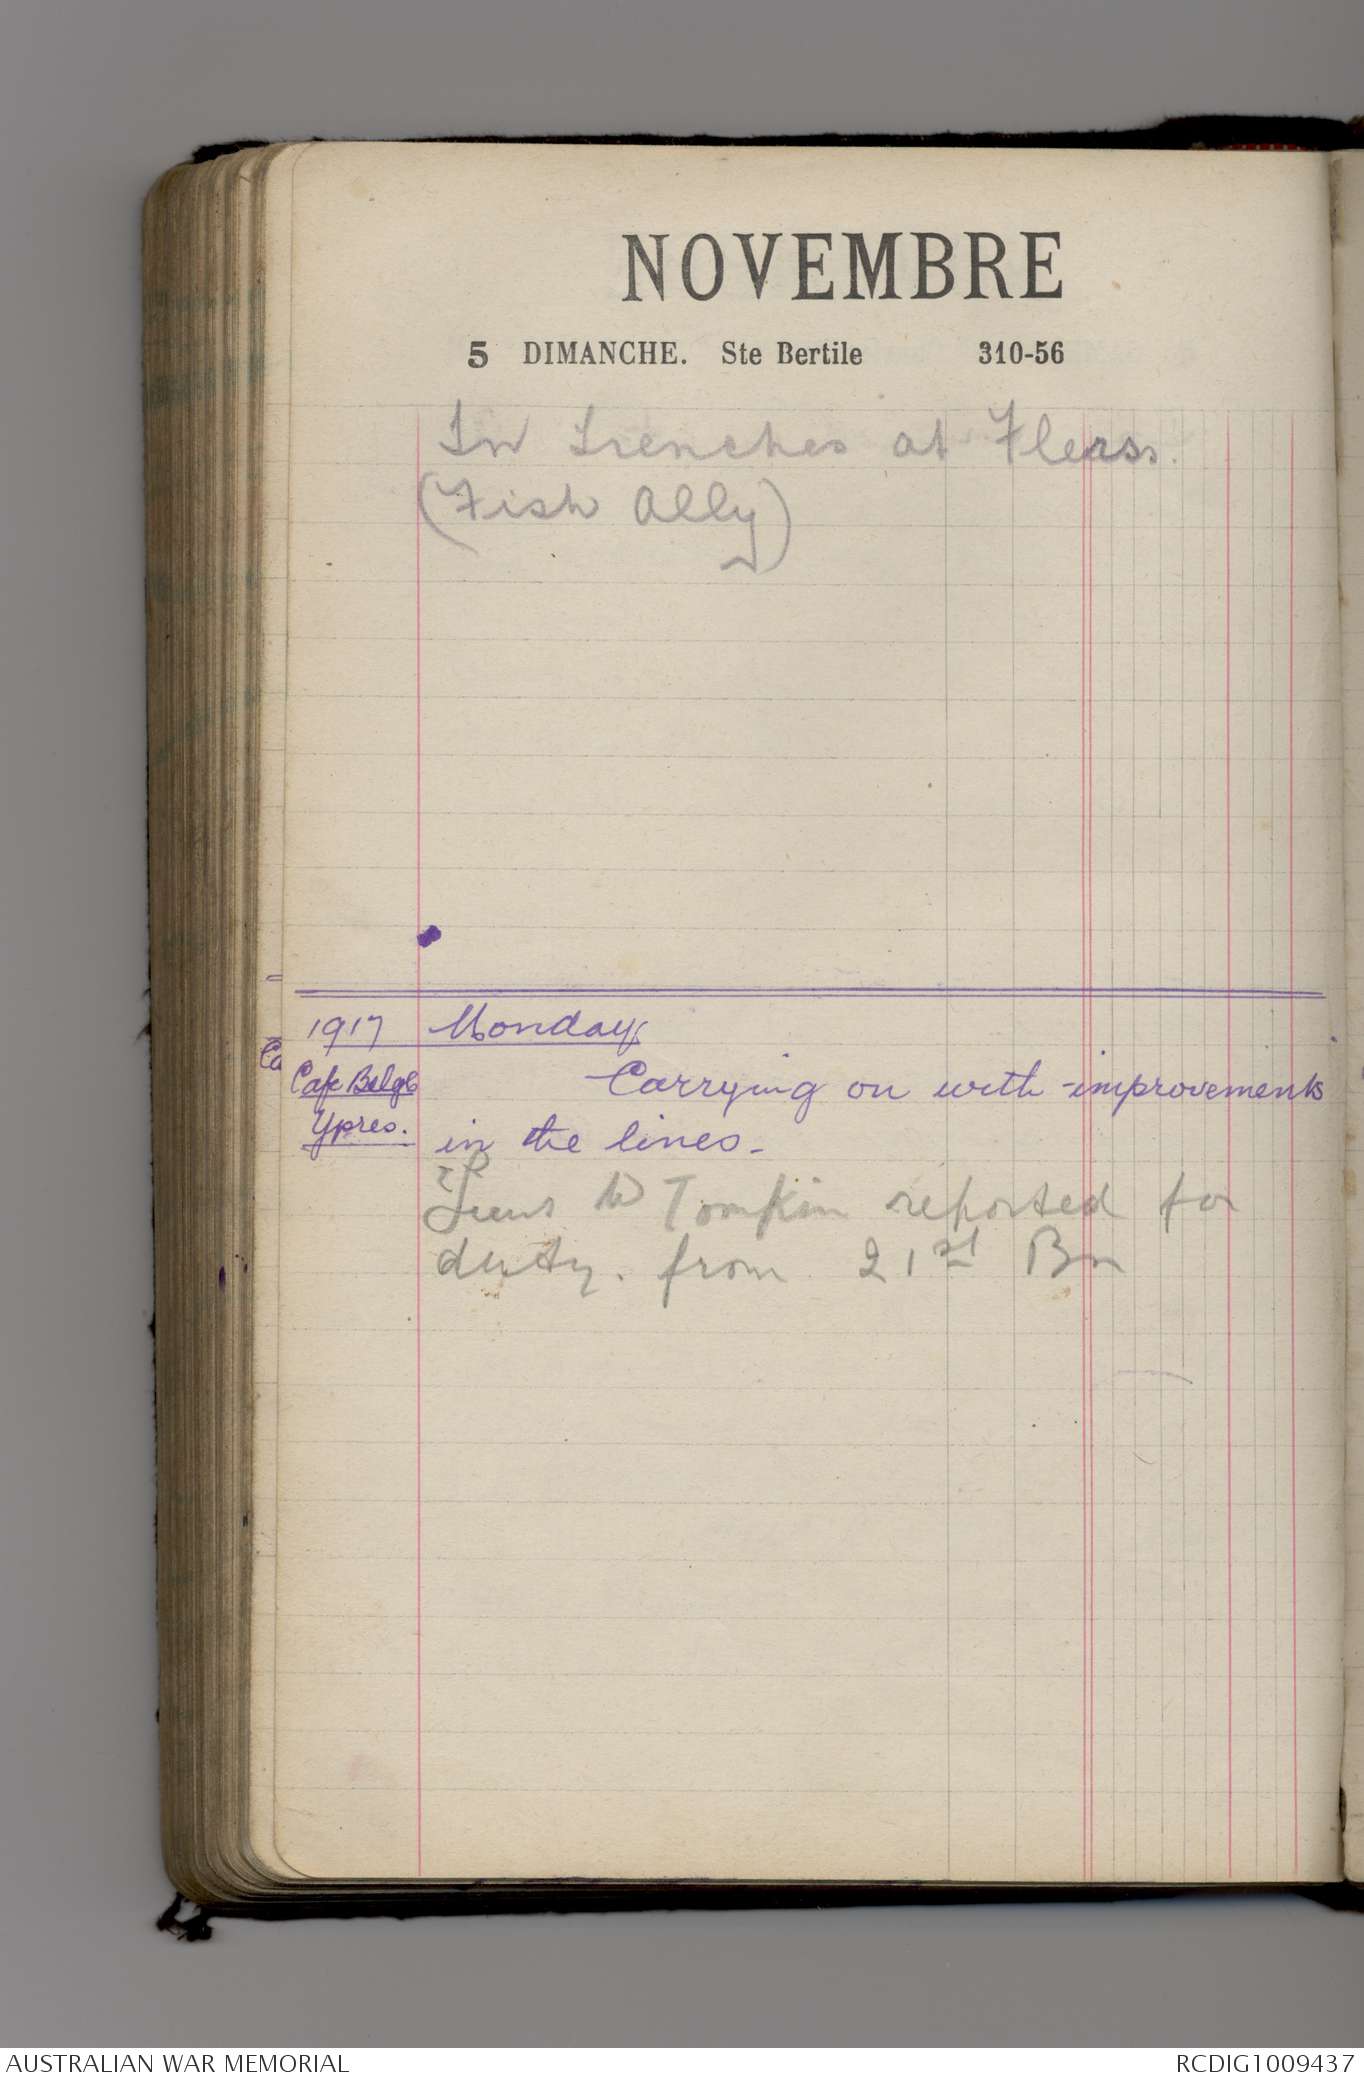 NOVEMBRE
5 DIMANCHE. Ste Bertile 310-56
In Trenches at Flerss.
(Fish Ally)
1917 Monday
Ca
Cafe Belge Carrying on with improvements
Ypres. in the lines-
W Tomkin reported for
duty. from 21st Bn
AUSTRALIAN WAR MEMORIAL RCDIG1009437